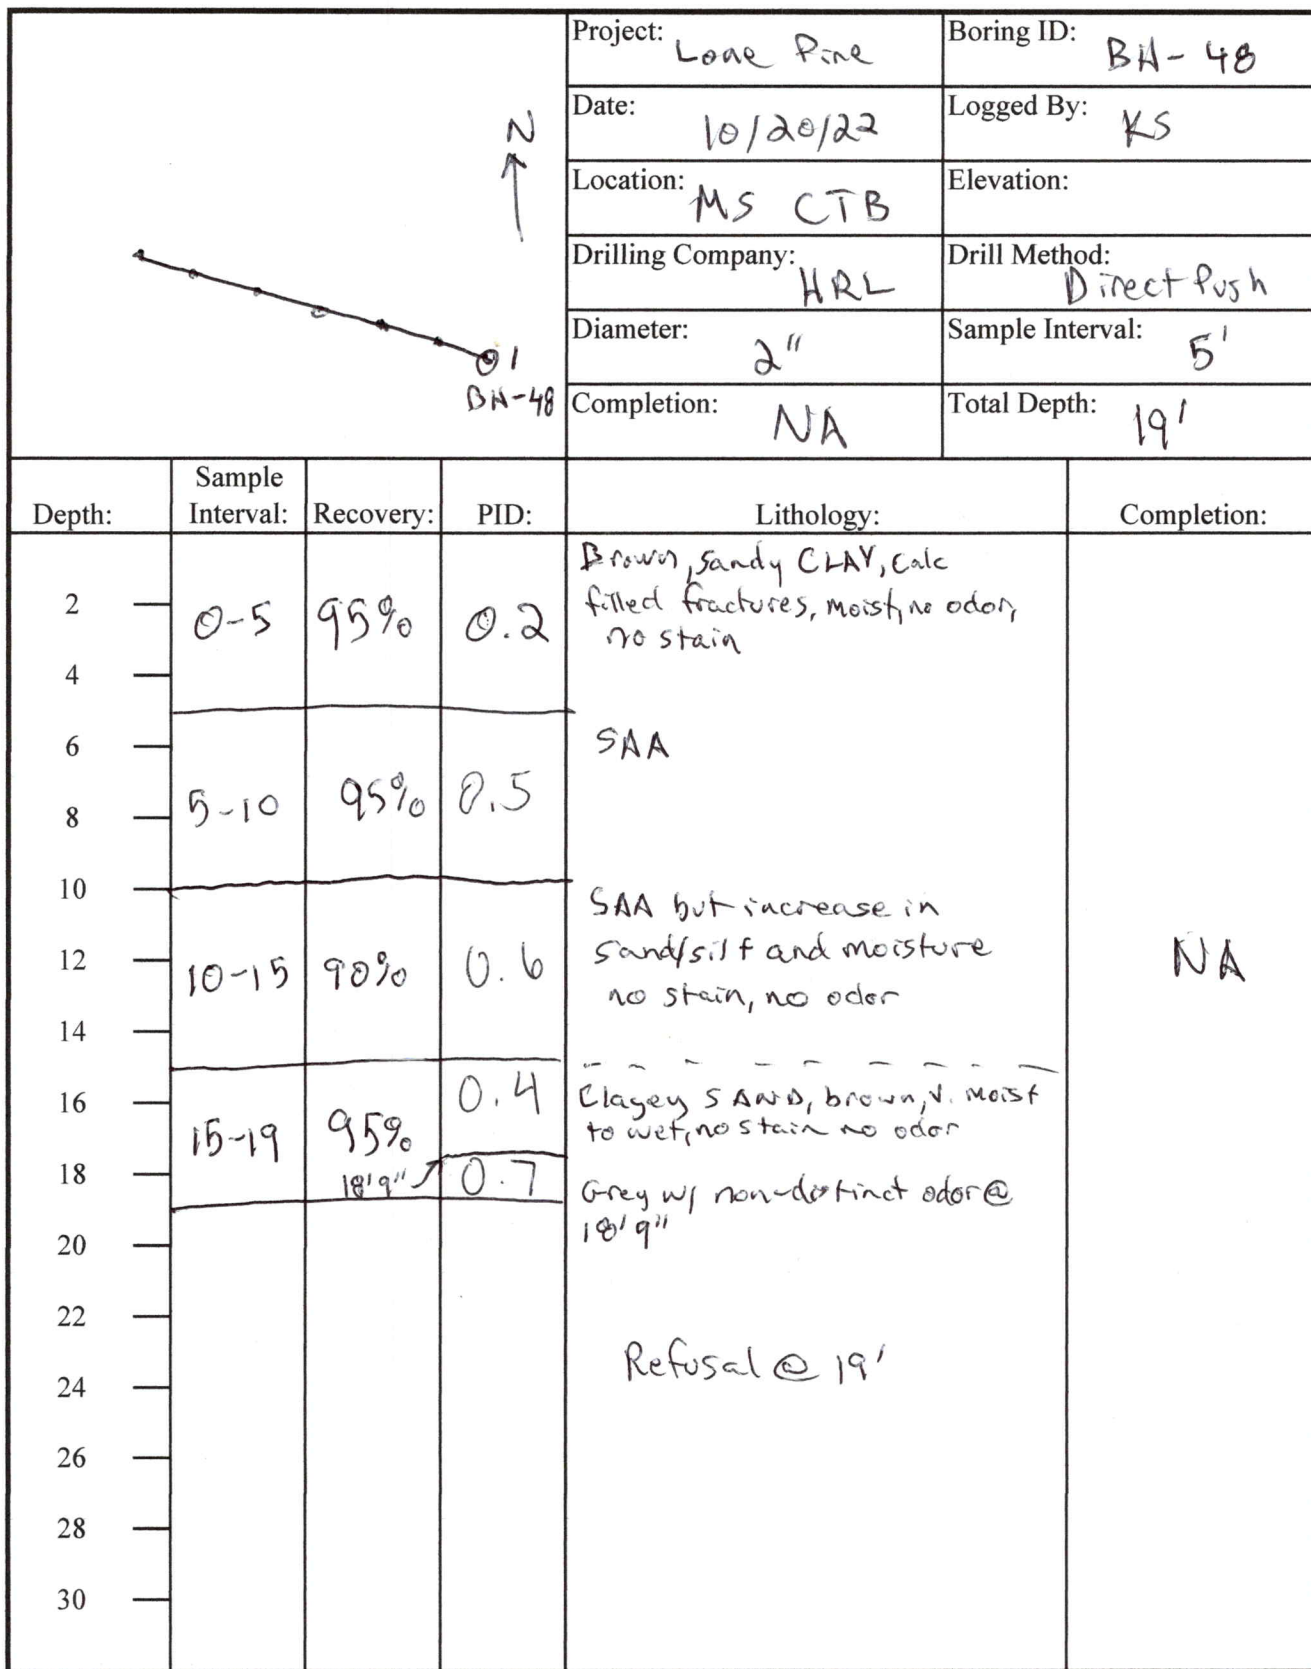 N
BH-48
1
Project: Lone Pine
Boring ID: BH-48
Date: 10/20/22
Logged By: KS
Location: MS CTB
Elevation:
Drilling Company: HRL
Drill Method: Direct Push
Diameter: 2"
Sample Interval: 5'
Completion: NA
Total Depth: 19'
Depth:
Sample
Interval:
Recovery:
PID:
Lithology:
Completion:
2
4
6
8
10
12
14
16
18
20
22
24
26
28
30
0-5 95% 0.2
Brown, sandy CLAY, calc
filled fractures, moist, no odor,
no stain
5-10 95% 0.5
SAA
10-15 90% 0.6
SAA but increase in
sand/silt and moisture
no stain, no odor
15-19 95% 0.4
Clayey SAND, brown, v. moist
to wet, no stain no odor
18'9" 0.7
Grey w/ non-distinct odor @
18'9"
Refusal @ 19'
NA